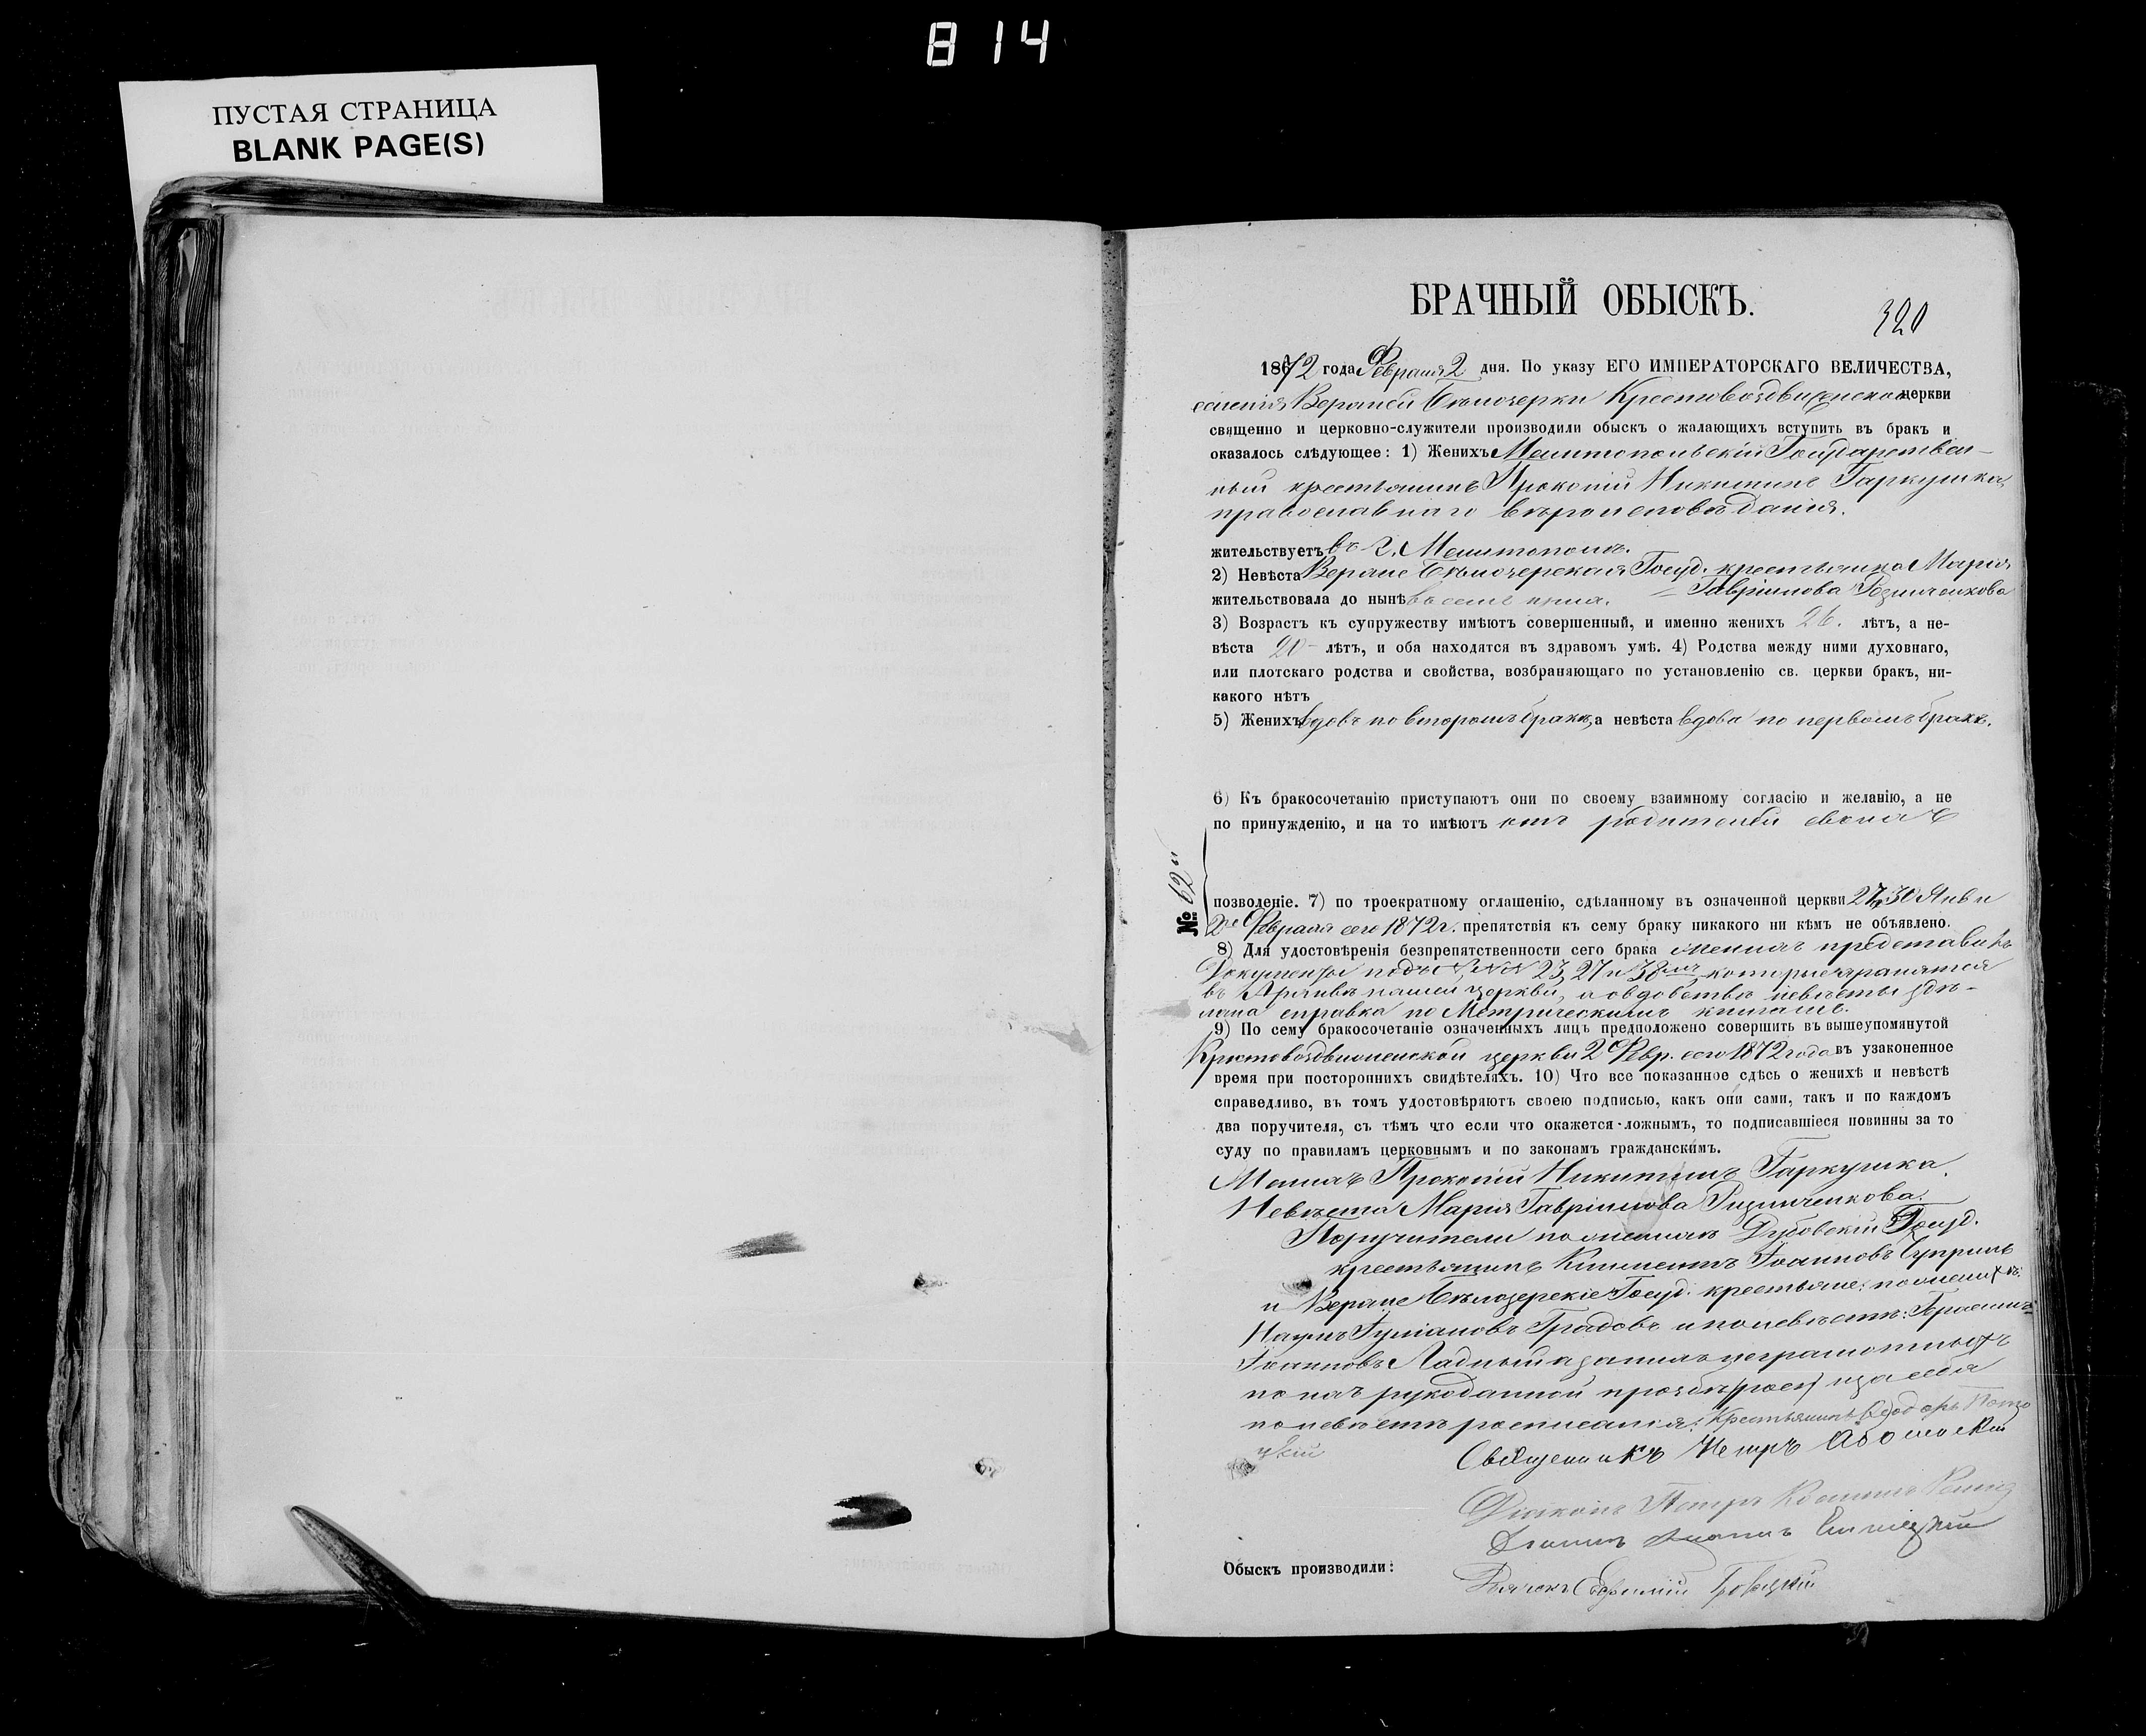 814
ПУСТАЯ СТРАНИЦА
BLANK PAGE(S)
БРАЧНЫЙ ОБЫСКЪ.
320
1872 года Февраля 2 дня. По указу ЕГО ИМПЕРАТОРСКАГО ВЕЛИЧЕСТВА,
селенія Верхней Бѣлозерки Крестовоздвиженской церкви
священно и церковно-служители производили обыскъ о жалающихъ вступить въ бракъ и
оказалось слѣдующее: 1) Женихъ Мелитопольскій Государствен-
ный крестьянинъ Прокопій Никитинъ Гаркушка,
православнаго вѣроисповѣданія.
жительствуетъ въ г. Мелитополѣ.
2) Невѣста Верхне Бѣлозерская Госуд. крестьянка Марія
Гавріилова
жительствовала до нынѣ въ семъ
3) Возрастъ къ супружеству имѣютъ совершенный, и именно женихъ 26. лѣтъ, а не-
вѣста 20 лѣтъ, и оба находятся въ здравомъ умѣ. 4) Родства между ними духовнаго,
или плотскаго родства и свойства, возбраняющаго по установленію св. церкви бракъ, ни-
какого нѣтъ
5) Женихъ вдовъ по второмъ бракѣ, а невѣста вдова по первомъ бракѣ.
6) Къ бракосочетанію приступаютъ они по своему взаимному согласію и желанію, а не
по принужденію, и на то имѣютъ отъ родителей своихъ
№ 62й
позволеніе. 7) по троекратному оглашенію, сдѣланному въ означенной церкви 27, 30 Янв и
2е Февраля сего 1872 г. препятствія къ сему браку никакого ни кѣмъ не объявлено.
8) Для удостовѣренія безпрепятственности сего брака женихъ представилъ
Документы подъ №№ 23, 27 и 38мъ которые хранятся
въ Архивѣ нашей церкви, а о вдовствѣ невѣсты здѣ-
лана справка по Метрическимъ книгамъ.
9) По сему бракосочетаніе означенныхъ лицъ предположено совершить въ вышеупомянутой
Крестовоздвиженской церкви 2 Февр. сего 1872 года въ узаконенное
время при постороннихъ свидѣтеляхъ. 10) Что все показанное сдѣсь о женихѣ и невѣстѣ
справедливо, въ томъ удостовѣряютъ своею подписью, какъ они сами, такъ и по каждомъ
два поручителя, съ тѣмъ что если что окажется ложнымъ, то подписавшіеся повинны за то
суду по правиламъ церковнымъ и по законамъ гражданскимъ.
Женихъ Прокопій Никитинъ Гаркушка.
Невѣста Марія Гавріилова
Поручители по женихѣ Дубовскій Госуд.
крестьянинъ Климентъ Іоанновъ Чупринъ
и Верхне Бѣлозерскіе Госуд. крестьяне: по женихѣ:
Наумъ Градовъ и по невѣстѣ: Герасимъ
Іоанновъ Ладный а за нихъ неграмотныхъ
по ихъ рукоданной прозбѣ и за себя
по невѣстѣ росписался: Крестьянинъ Ѳеодоръ
цкій
Священникъ Петръ
Діаконъ Петръ
Обыскъ производили: